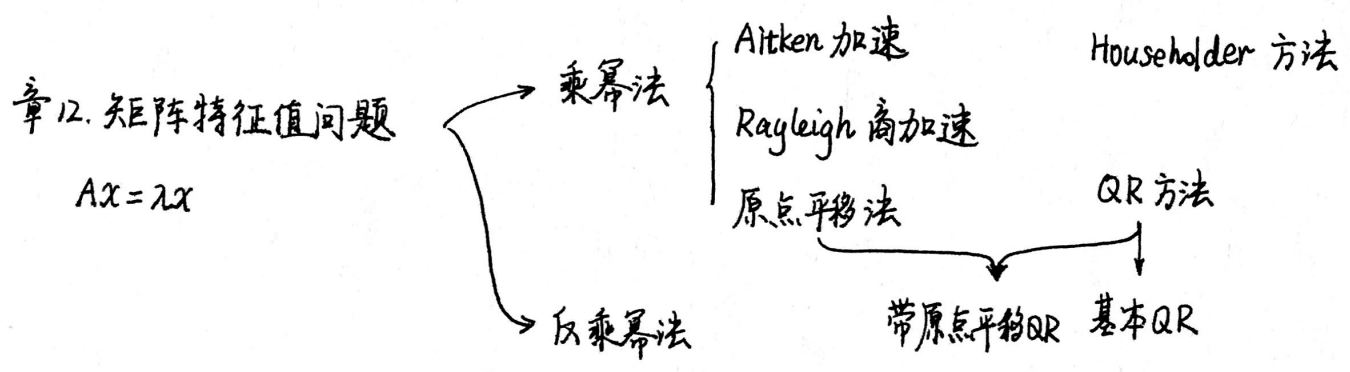 章12. 矩阵特征值问题
Ax=λx
乘幂法
Aitken 加速
Rayleigh 商加速
原点平移法
反乘幂法
Householder 方法
QR 方法
带原点平移QR
基本QR